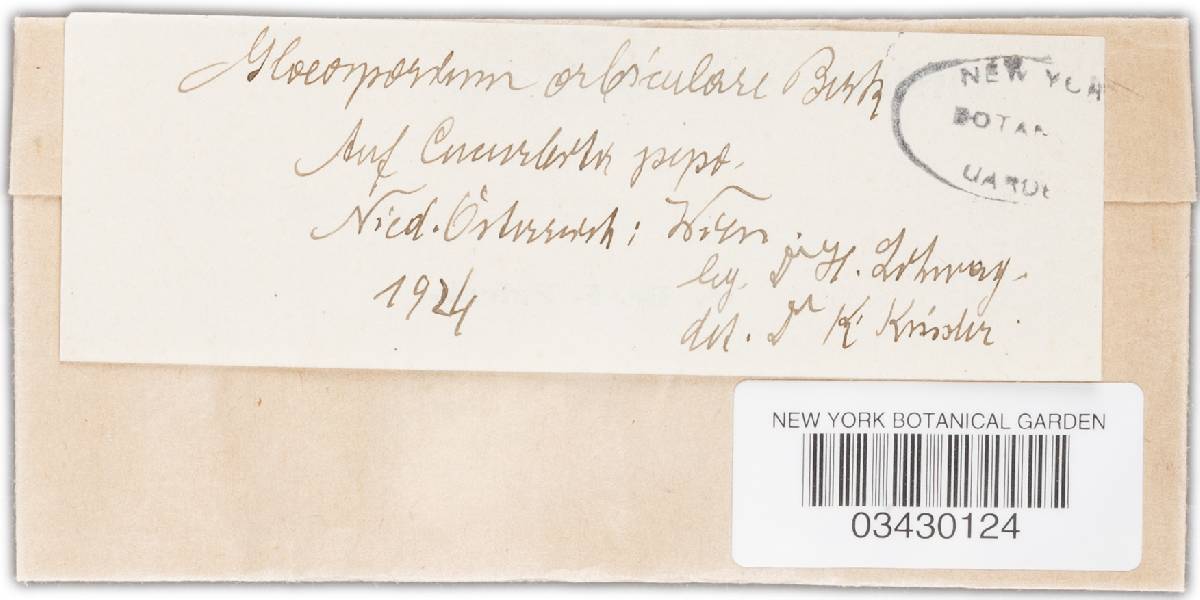 Gloeosporium orbiculare Berk
Auf Cucurbita pepo.
Nied. Österreich: Wien
1924
leg. Dr H. Lohwag.
det. Dr K.
NEW YOR
BOTAN
GARDE
NEW YORK BOTANICAL GARDEN
03430124